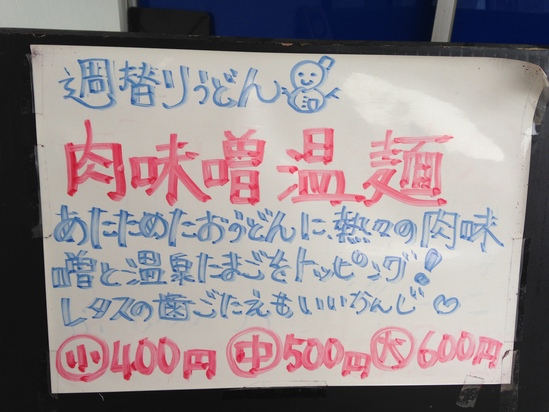 週替りうどん
肉味噌温麺
あたためたおうどんに、熱々の肉味
噌と温泉たまごをトッピング!
レタスの歯ごたえもいいかんじ♡
小400円 中500円 大600円